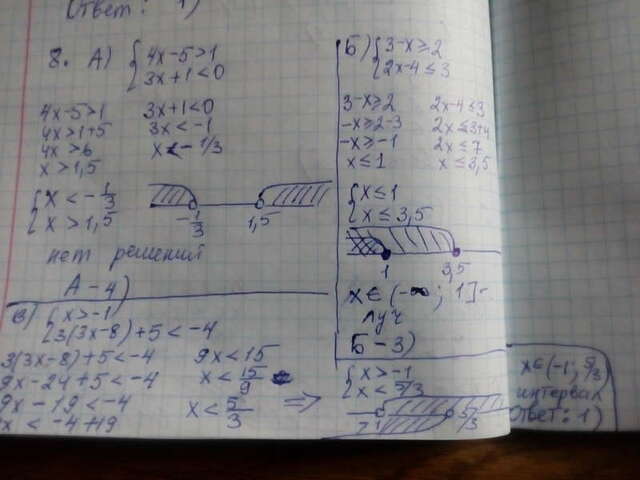 Ответ: 1)
8. А) { 4x-5>1
3x+1<0
4x-5>1 3x+1<0
4x>1+5 3x<-1
4x>6 x<-1/3
x>1,5
{ x<-1/3
x>1,5
-1/3 1,5
нет решений
А-4)
Б) { 3-x≥2
2x-4≤3
3-x≥2 2x-4≤3
-x≥2-3 2x≤3+4
-x≥-1 2x≤7
x≤1 x≤3,5
{ x≤1
x≤3,5
1 3,5
x∈(-∞; 1]-
луч
Б-3)
в) { x>-1
3(3x-8)+5<-4
3(3x-8)+5<-4 9x<15
9x-24+5<-4 x<15/9
9x-19<-4 x<5/3 =>
x<-4+19
{ x>-1
x<5/3
-1 5/3
x∈(-1; 5/3)
интервал
Ответ: 1)